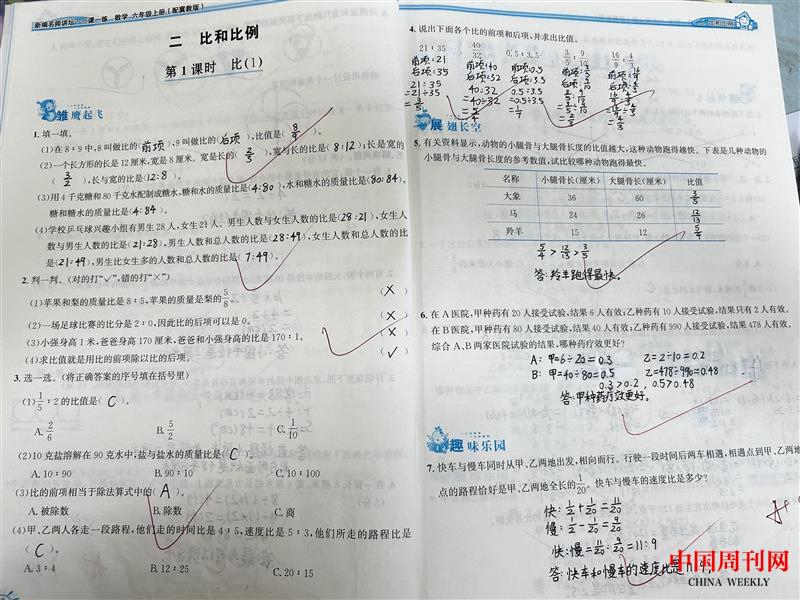 新编名师讲坛·一课一练 数学 六年级上册(配冀教版)
二 比和比例
第1课时 比(1)
雏鹰起飞
1. 填一填。
(1)在8:9中,8叫做比的(前项),9叫做比的(后项),比值是(8/9)。
(2)一个长方形的长是12厘米,宽是8厘米。宽是长的(2/3),宽与长的比是(8:12),长是宽的
(3/2),长与宽的比是(12:8)。
(3)用4千克糖和80千克水配制成糖水,糖和水的质量比是(4:80),水和糖水的质量比是(80:84),
糖和糖水的质量比是(4:84)。
(4)学校乒乓球兴趣小组有男生28人,女生21人。男生人数与女生人数的比是(28:21),女生人
数与男生人数的比是(21:28),男生人数和总人数的比是(28:49),女生人数和总人数的比
是(21:49),男生比女生多的人数和总人数的比是(7:49)。
2. 判一判。(对的打“✓”,错的打“×”)
(1)苹果和梨的质量比是8:5,苹果的质量是梨的5/8。 (X)
(2)一场足球比赛的比分是2:0,因此比的后项可以是0。 (X)
(3)小强身高1米,爸爸身高170厘米,爸爸和小强身高的比是170:1。 (X)
(4)求比值就是用比的前项除以比的后项。 (✓)
3. 选一选。(将正确答案的序号填在括号里)
(1)1/5:2的比值是(C)。
A. 2/6 B. 5/2 C. 1/10
(2)10克盐溶解在90克水中,盐与盐水的质量比是(C)。
A. 10:90 B. 90:10 C. 10:100
(3)比的前项相当于除法算式中的(A)。
A. 被除数 B. 除数 C. 商
(4)甲、乙两人各走一段路程,他们走的时间比是4:5,速度比是5:3,他们所走的路程比是
(C)。
A. 3:4 B. 12:25 C. 20:15
比和比例
4. 说出下面各个比的前项和后项,并求出比值。
21:35 40/32 0.5:3.5 3/5:9/10 16/9:4/3
前项:21 前项:40 前项:0.5 前项:3/5 前项:16/9
后项:35 后项:32 后项:3.5 后项:9/10 后项:4/3
21:35 40:32 0.5:3.5 3/5:9/10 16/9:4/3
=21÷35 =40÷32 =0.5÷3.5 =3/5÷9/10 =16/9÷4/3
=3/5 =5/4 =1/7 =2/3 =4/3
展翅长空
5. 有关资料显示,动物的小腿骨与大腿骨长度的比值越大,这种动物跑得越快。下表是几种动物的
小腿骨长和大腿骨长度的参考数值,试比较哪种动物跑得最快。
名称 小腿骨长(厘米) 大腿骨长(厘米) 比值
大象 36 60 3/5
马 24 26 12/13
羚羊 15 12 5/4
5/4>12/13>3/5
答:羚羊跑得最快。
6. 在A医院,甲种药有20人接受试验,结果6人有效;乙种药有10人接受试验,结果只有2人有效。
在B医院,甲种药有80人接受试验,结果40人有效;乙种药有990人接受试验,结果478人有效。
综合A、B两家医院试验的结果,哪种药疗效更好?
A:甲=6÷20=0.3 乙=2÷10=0.2
B:甲=40÷80=0.5 乙=478÷990≈0.48
0.3>0.2,0.5>0.48
答:甲种药疗效更好。
趣味乐园
7. 快车与慢车同时从甲、乙两地出发,相向而行。行驶一段时间后两车相遇,相遇点到甲、乙两地中
点的路程恰好是甲、乙两地全长的1/20。快车与慢车的速度比是多少?
快:1/2+1/20=11/20
慢:1/2-1/20=9/20
快:慢=11/20:9/20=11:9
答:快车和慢车的速度比是11:9。
中国周刊网
CHINA WEEKLY